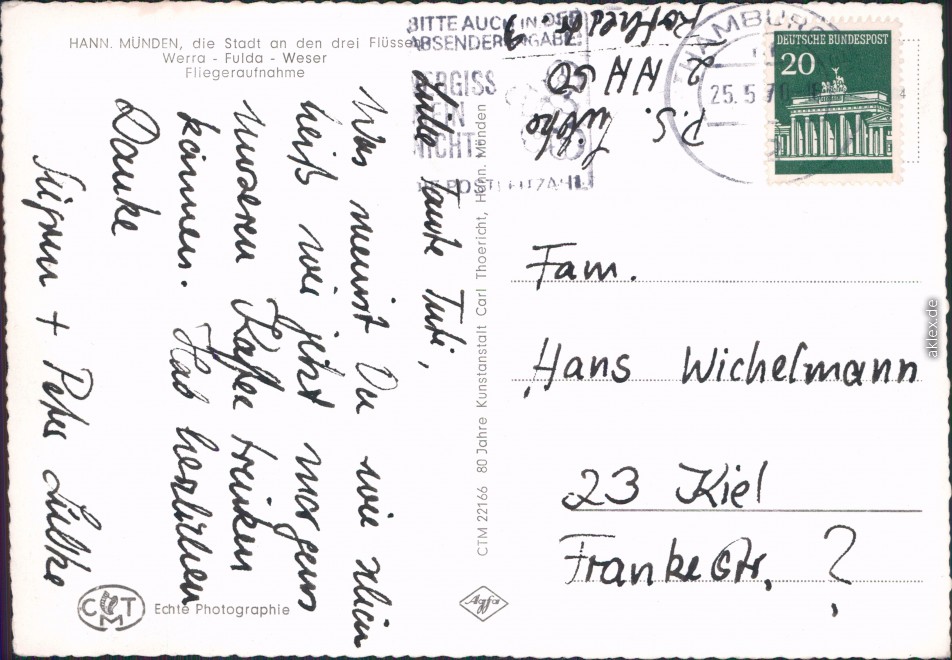 HANN. MÜNDEN, die Stadt an den drei Flüssen
Werra - Fulda - Weser
Fliegeraufnahme
BITTE AUCH IN DER
ABSENDERANGABE:
VERGISS
MEIN
NICHT
DIE POSTLEITZAHL
HAMBURG
25.5.70
DEUTSCHE BUNDESPOST
20
P.S. Lübke
2 HH 50
Liebe Tante Tuti,
Was meinst Du wie
heiß wir jetzt morgens
unseren Kaffee trinken
können. Hab herzlichen
Danke
Sigrun + Peter Lübke
Fam.
Hans Wichelmann
23 Kiel
Frankestr. ?
CTM 22166 80 Jahre Kunstanstalt Carl Thoericht, Hann. Münden
CTM
Echte Photographie
Agfa
aklex.de